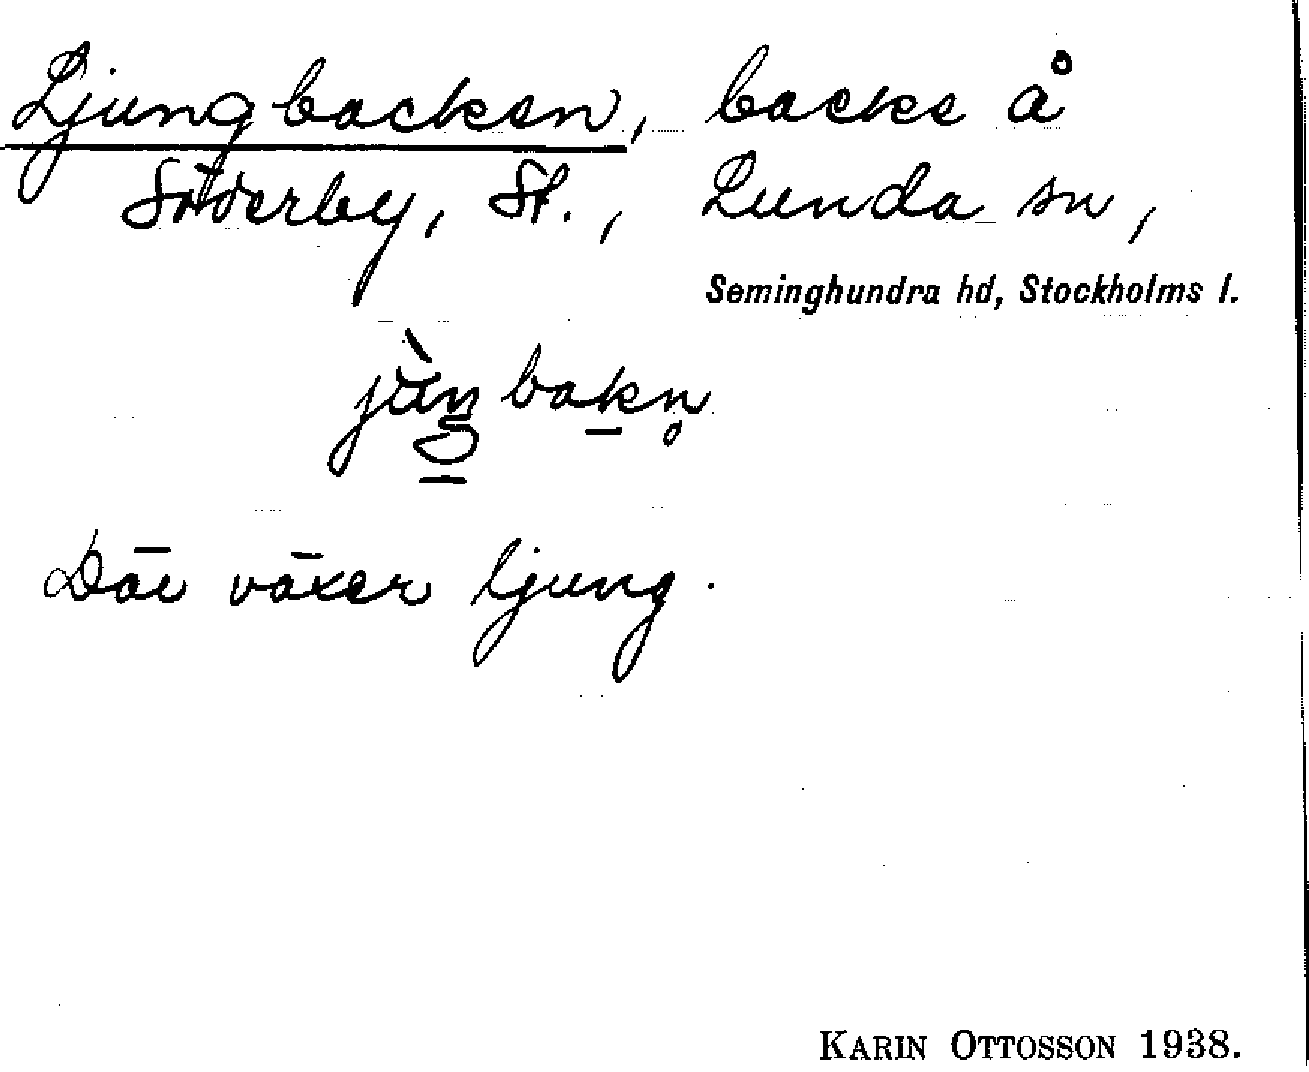 Ljungbacken, backe å
Söderby, St., Lunda sn,
Seminghundra hd, Stockholms l.
jùŋbakn̥
Där växer ljung.
KARIN OTTOSSON 1938.